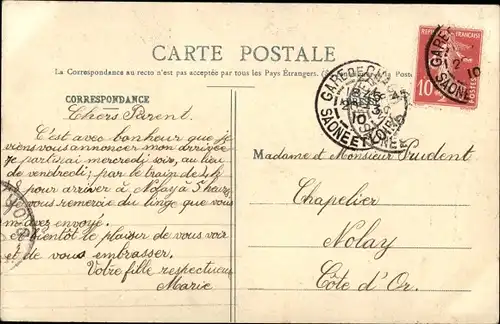 CARTE POSTALE
La Correspondance au recto n'est pas acceptée par tous les Pays Étrangers.
CORRESPONDANCE
Chers Parent.
C'est avec bonheur que je
viens vous annoncer mon arrivée
Je partirai mercredi soir, au lieu
de vendredi; par le train de
pour arriver à Nolay à 5 heures
Je vous remercie du linge que vous
m'avez envoyé.
et bientôt le plaisir de vous voir
et de vous embrasser.
Votre fille respectueuse
Marie
GARE DE
SAONE ET LOIRE
10
RÉPUBLIQUE FRANÇAISE
POSTES
10
GARE
12
10
SAONE
Madame et Monsieur Prudent
Chapelier
Nolay
Côte d'Or.